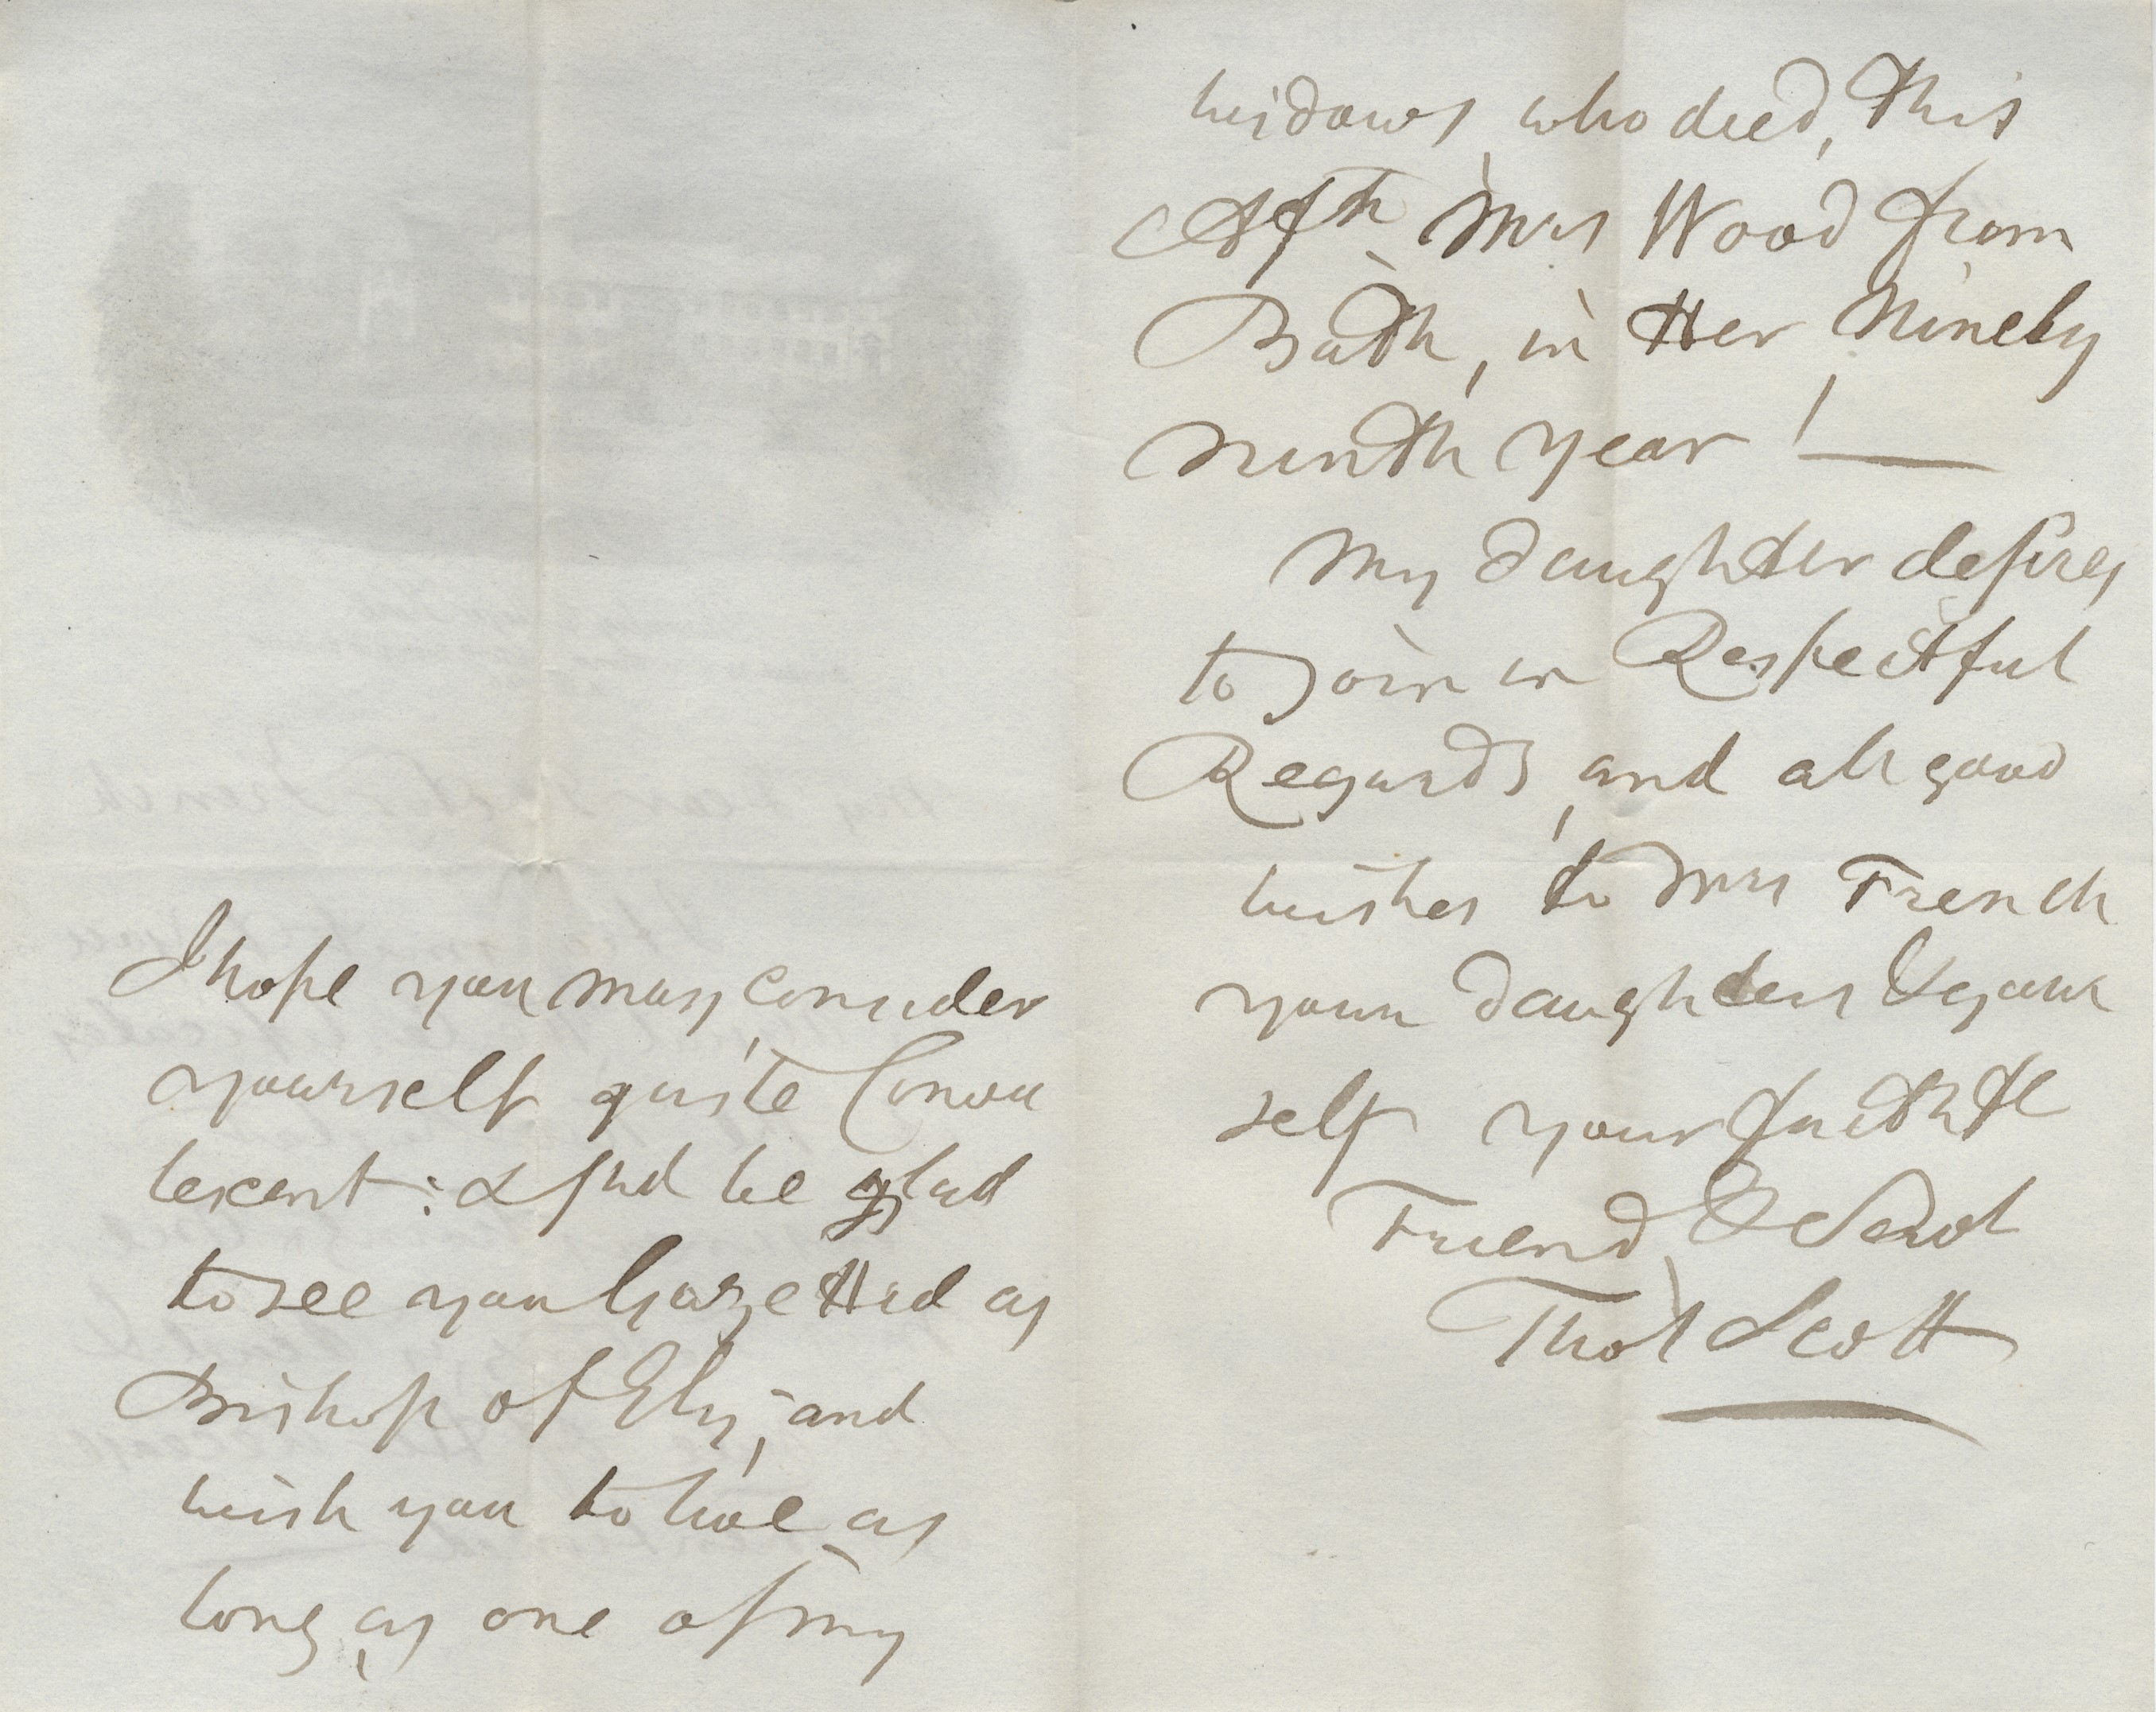 I hope you may consider
yourself quite Conva
lescent: & shd be glad
to see you Gazetted as
Bishop of Ely, and
wish you to live as
long, as one of my
widows, who died, this
Mrs Wood from
Bath, in Her Ninety
ninth year! —
My daughter desires
to join in Respectful
Regards, and all good
wishes to Mrs French
your daughters & your
self your faithfl
Friend, & Servt
Thos Scott